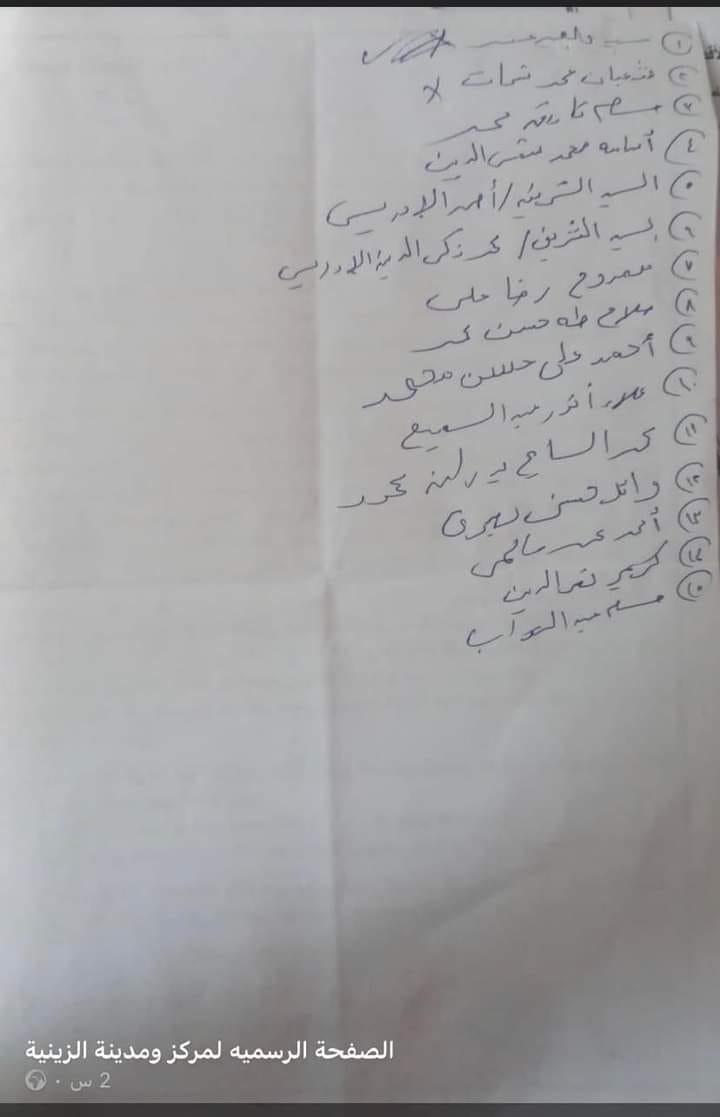 ١ سيد
٢ شعبان محمد شحات
٣ حسام فاروق محمد
٤ أسامه محمد شمس الدين
٥ السيد الشريف / أحمد الإدريسي
٦ السيد الشريف / محمد زكى الدين الإدريسي
٧ ممدوح رضا على
٨ صلاح طه حسن محمد
٩ أحمد على حسن محمد
١٠ علاء أنور عبد السميع
١١ محمد السايح محمود
١٢ وائل حسن
١٣ أحمد
١٤ كريم نصر الدين
١٥ حسام عبد التواب
الصفحة الرسميه لمركز ومدينة الزينية
2 س ·